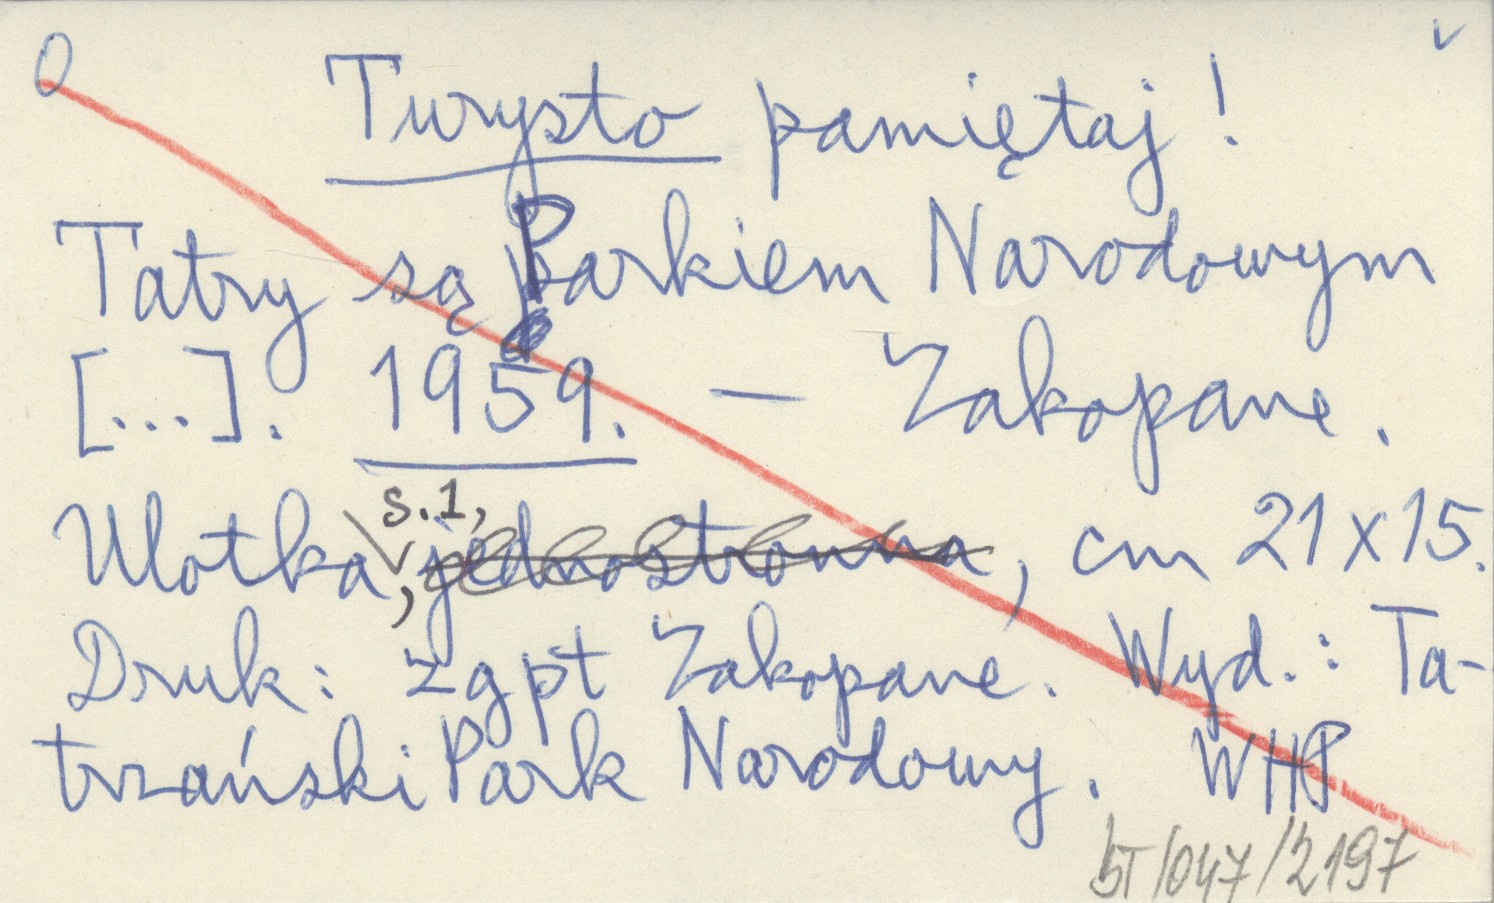 O
Turysto pamiętaj!
Tatry są Parkiem Narodowym
[...]. 1959. — Zakopane.
s.1,
Ulotka, jednostronna, cm 21x15.
Druk: zgpt Zakopane. Wyd.: Ta-
trzański Park Narodowy. WHP
BT/047/2197